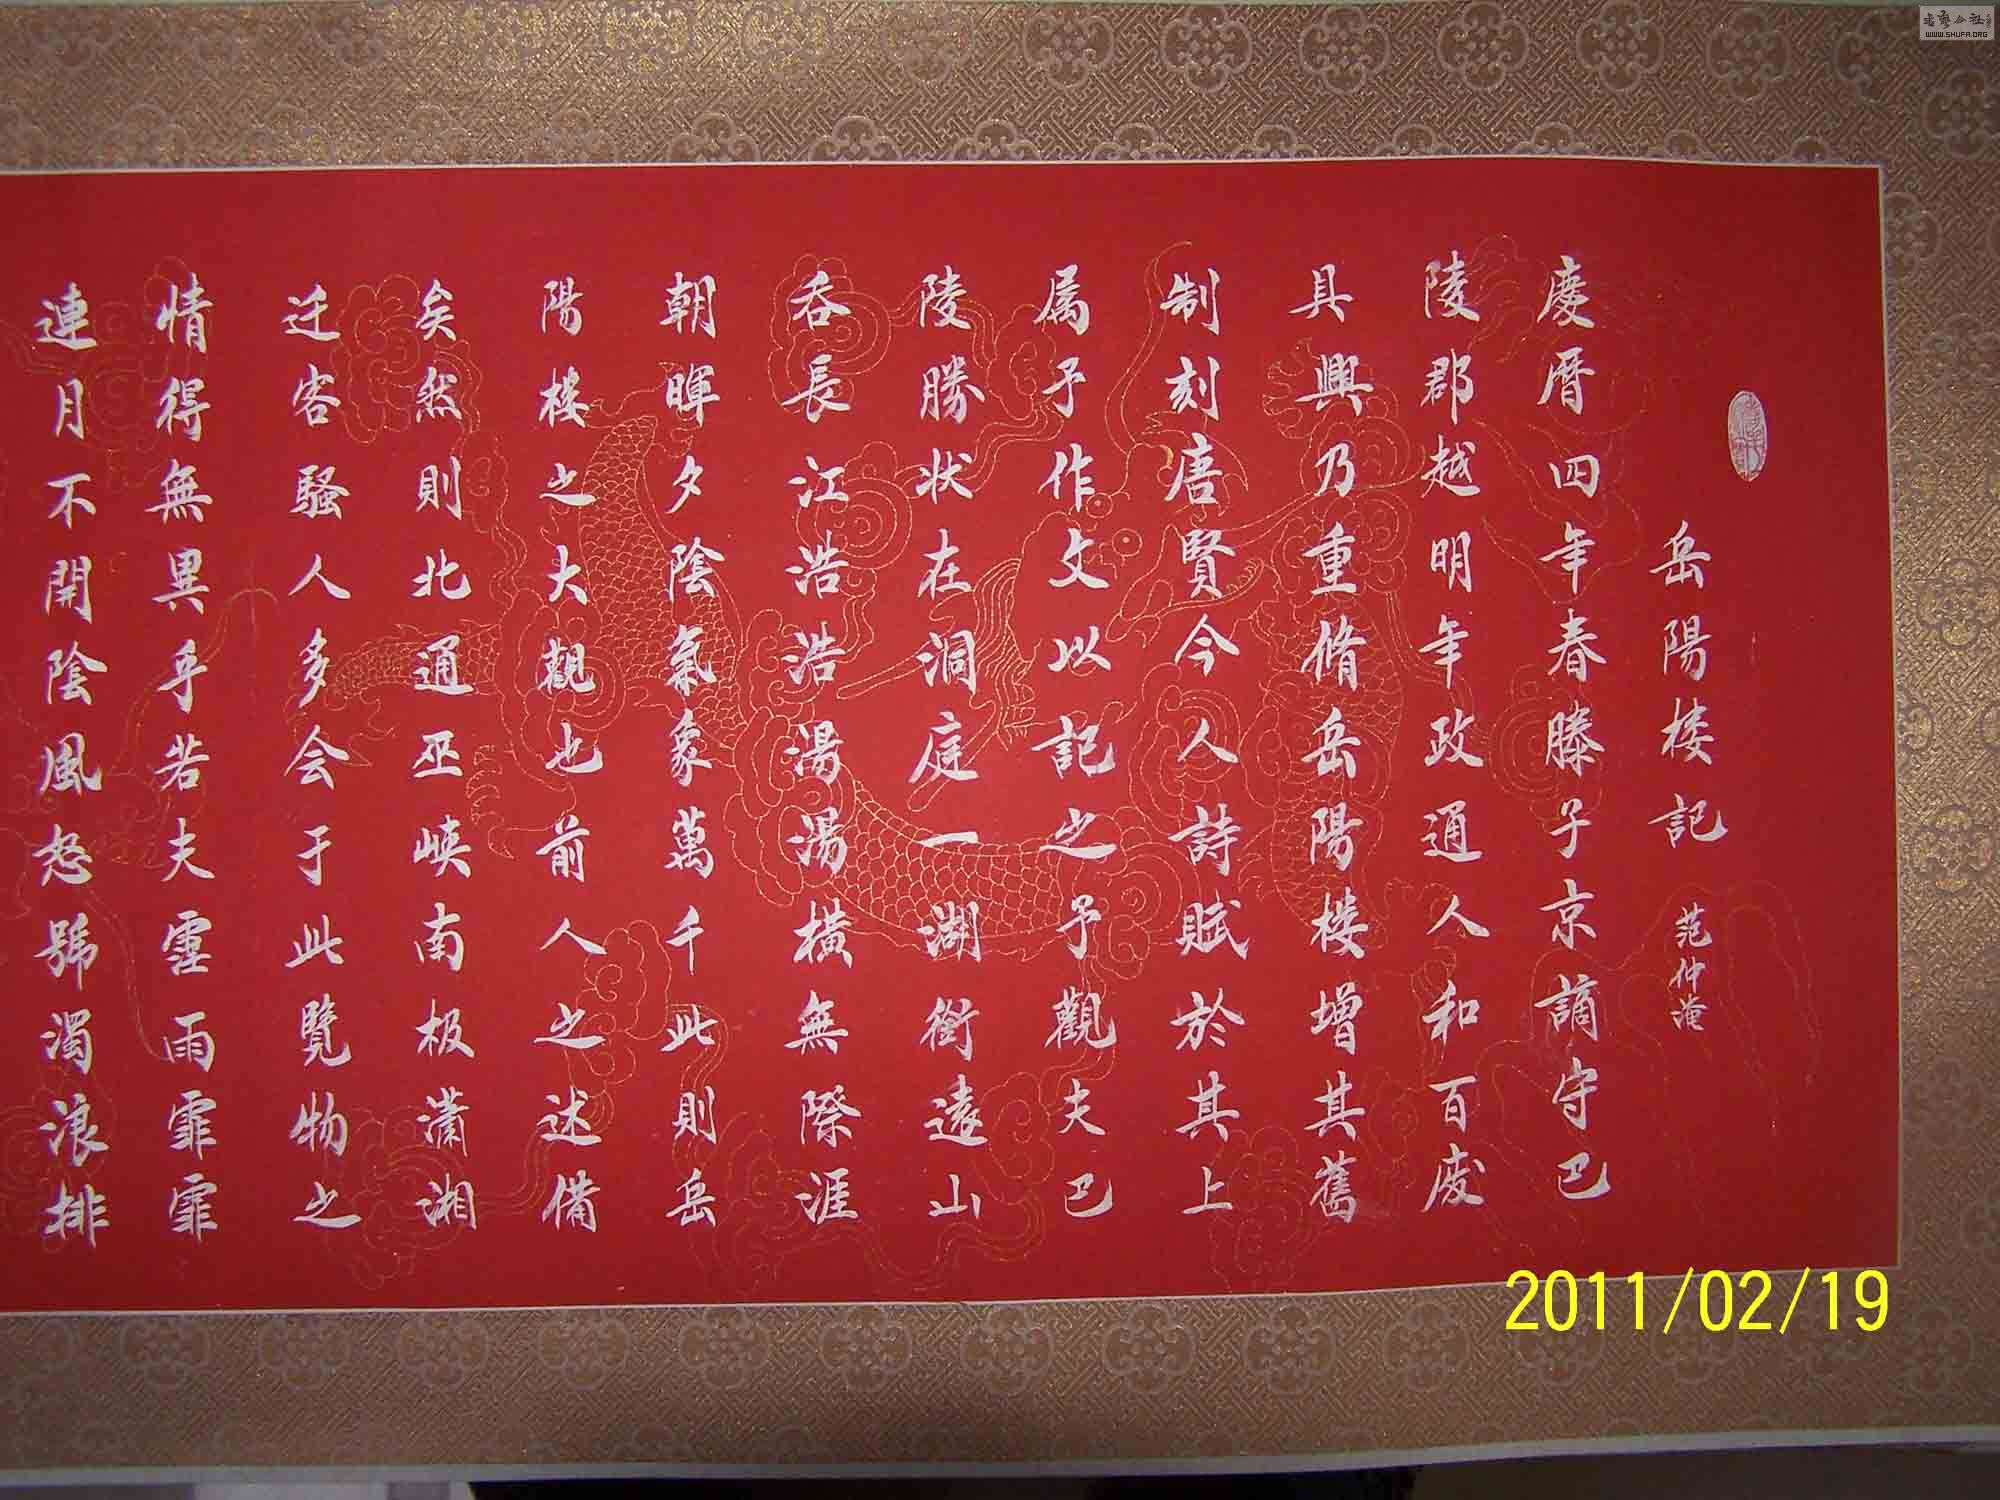 岳陽楼記 范仲淹
慶曆四年春滕子京謫守巴
陵郡越明年政通人和百废
具興乃重脩岳陽楼增其舊
制刻唐賢今人詩賦於其上
属予作文以記之予觀夫巴
陵勝状在洞庭一湖銜遠山
吞長江浩浩湯湯横無際涯
朝暉夕陰氣象萬千此則岳
陽楼之大觀也前人之述備
矣然則北通巫峡南极潇湘
迁客騷人多会于此覽物之
情得無異乎若夫霪雨霏霏
連月不開陰風怒號濁浪排
書藝公社
WWW.SHUFA.ORG
2011/02/19